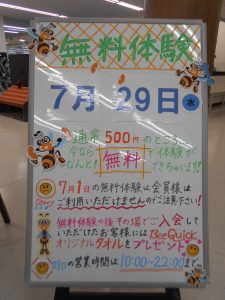 無料体験
7月 29日 水
通常500円のところ
今なら 無料 で体験が
なんと! できちゃいます!!
7月1日の無料体験は会員様は
Sorry ご利用いただけませんのでご注意下さい!
無料体験の後その場でご入会して
いただけたお客様にはBeeQuick
オリジナルタオルをプレゼント
29日の営業時間は10:00~22:00まで